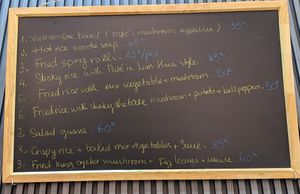 1. Vietnamese bread (pate, mushroom, vegetables) 35k
2. Hot rice noodle soup 45k
3. Fried spring rolls - 10k/pcs
4. Sticky rice with Pate in Lien Hua style - 45k
5. Fried rice with mix vegetables + mushroom. 50k
6. Fried rice with mushroom + potato + bell peppers. 50k
7. Salad guava. 60k
8. Crispy rice + boiled mix vegetables + sauce - 85k
9. Fried king oyster mushroom + Fig leaves + sauce. 60k